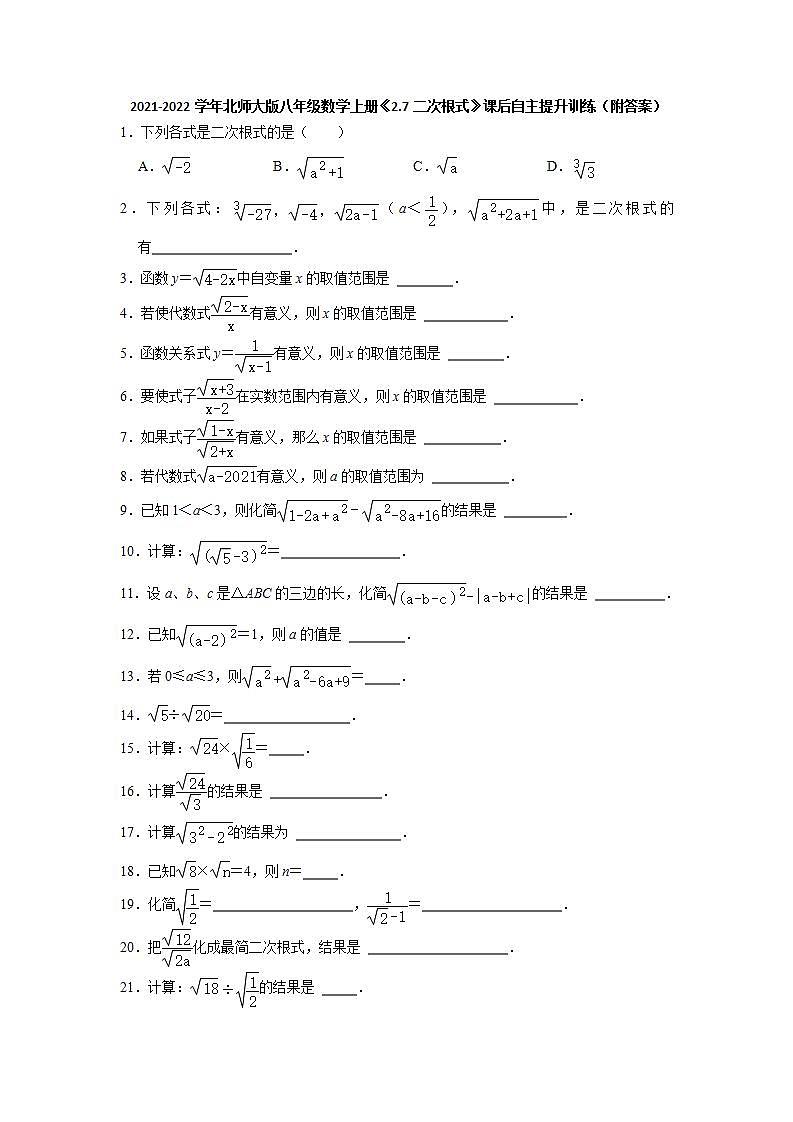 2021-2022 学年北师大版八年级数学上册《2.7 二次根式》课后自主提升训练（附答案）
1．下列各式是二次根式的是（　　）
A．√-2　B．√(a²+1)　C．√a　D．∛3
2．下列各式：∛-27，√-4，√(2a-1)（a＜1/2），√(a²+2a+1)中，是二次根式的
有____________________．
3．函数 y＝√(4-2x)中自变量 x 的取值范围是 ________．
4．若使代数式√(2-x)/x有意义，则 x 的取值范围是 ____________．
5．函数关系式 y＝1/√(x-1)有意义，则 x 的取值范围是 ________．
6．要使式子√(x+3)/(x-2)在实数范围内有意义，则 x 的取值范围是 ____________．
7．如果式子√(1-x)/√(2+x)有意义，那么 x 的取值范围是 ___________．
8．若代数式√(a-2021)有意义，则 a 的取值范围为 ___________．
9．已知 1＜a＜3，则化简√(1-2a+a²)-√(a²-8a+16)的结果是 _________．
10．计算：√((√5-3)²)＝_________________．
11．设 a、b、c 是△ABC 的三边的长，化简√((a-b-c)²)-|a-b+c|的结果是 __________．
12．已知√((a-2)²)＝1，则 a 的值是 ________．
13．若 0≤a≤3，则√(a²)+√(a²-6a+9)＝_____．
14．√5÷√20＝__________________．
15．计算：√24×√(1/6)＝_____．
16．计算√24/√3的结果是 ________________．
17．计算√(3²-2²)的结果为 _______________．
18．已知√8×√n＝4，则 n＝_____．
19．化简√(1/2)＝____________________，1/(√2-1)＝____________________．
20．把√12/√(2a)化成最简二次根式，结果是 ____________________．
21．计算：√18÷√(1/2)的结果是 _____．